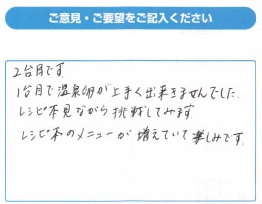 ご意見・ご要望をご記入ください
2台目です。
1台目で温泉卵が上手く出来ませんでした。
レシピ本見ながら挑戦してみます。
レシピ本のメニューが増えていて楽しみです。